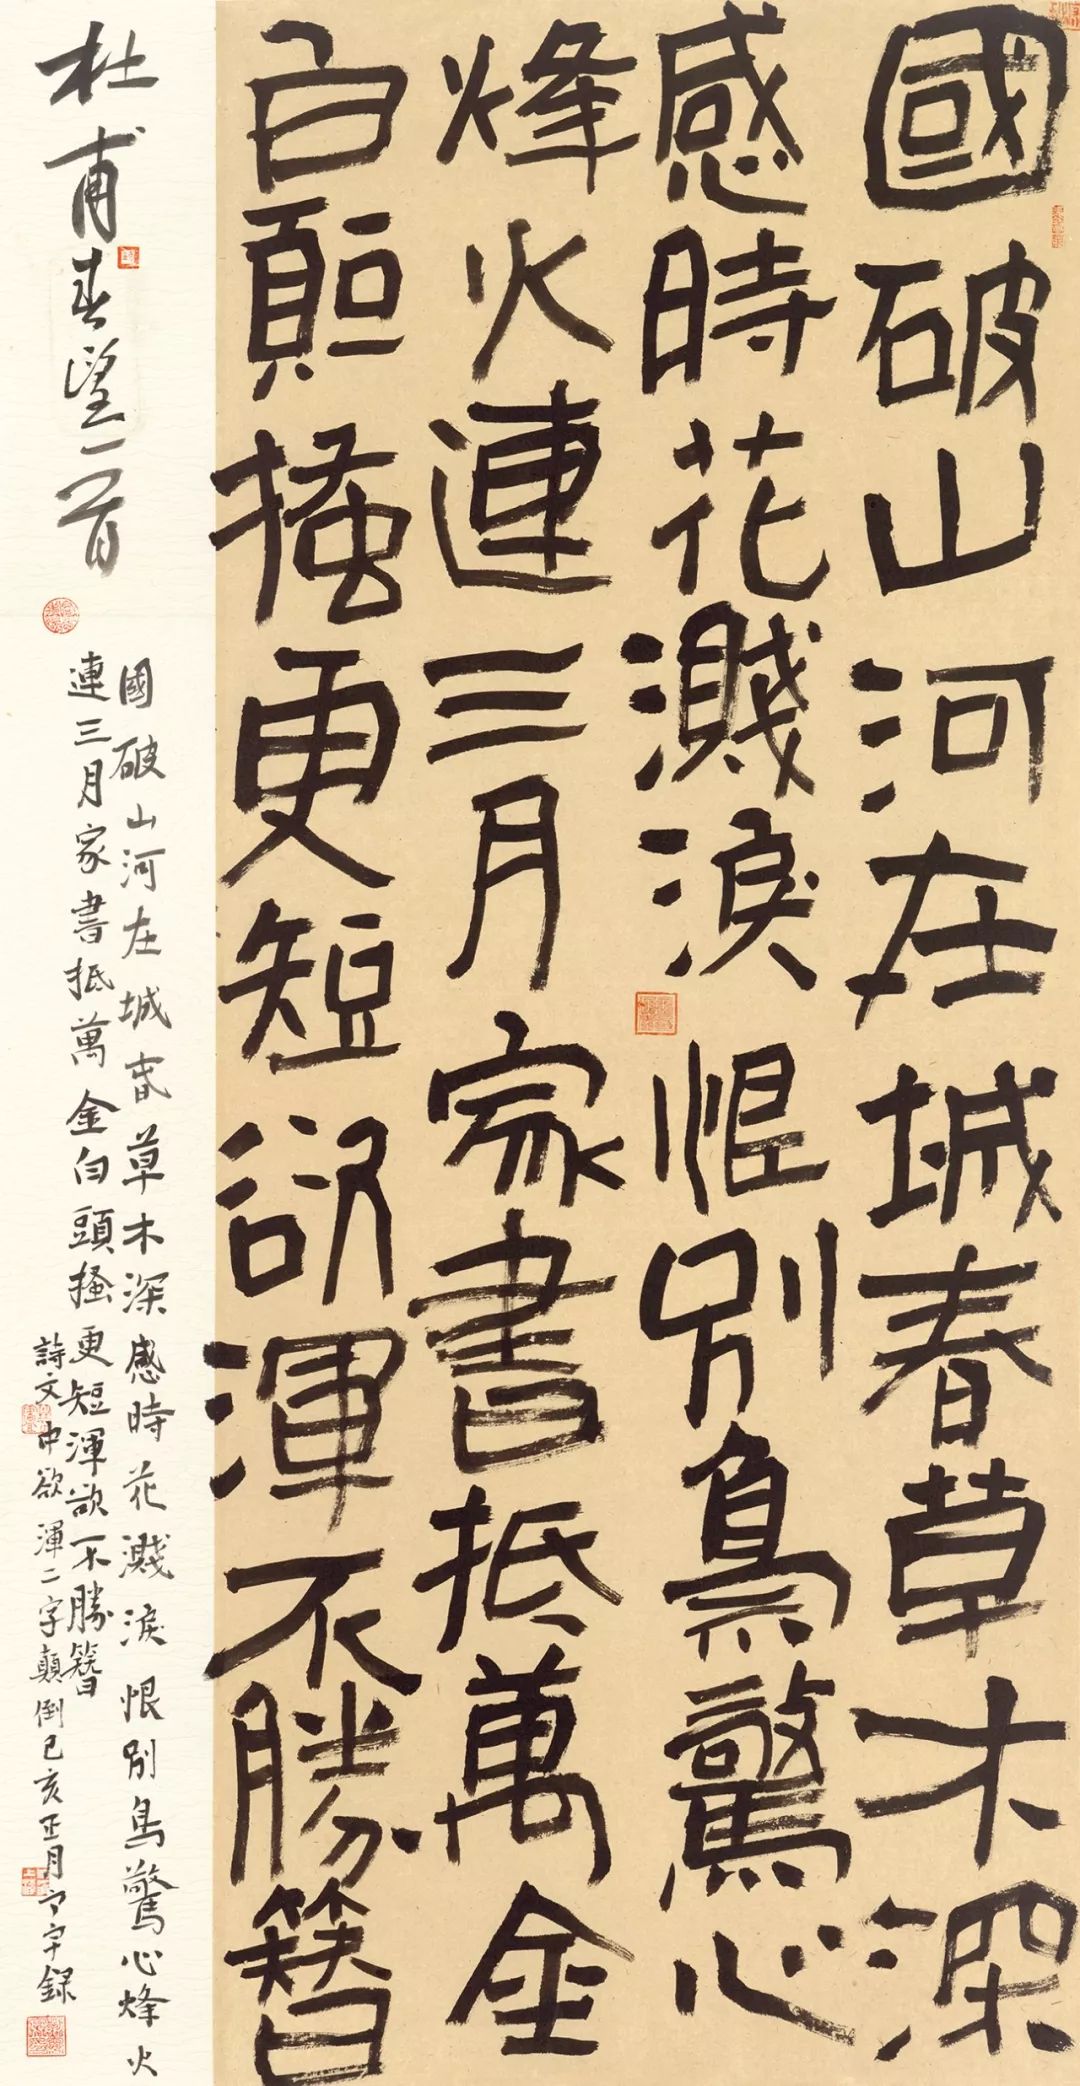 國破山河在城春草木深
感時花濺淚恨別鳥驚心
烽火連三月家書抵萬金
白頭搔更短欲渾不勝簪
杜甫春望一首
國破山河在城春草木深感時花濺淚恨別鳥驚心烽火
連三月家書抵萬金白頭搔更短渾欲不勝簪
詩文中欲渾二字顛倒己亥正月錄